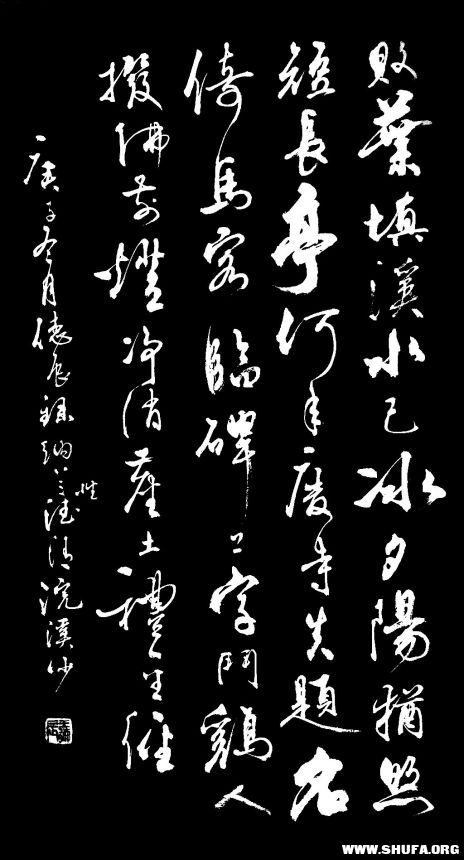 敗葉填溪水已冰夕陽猶照
短長亭何年廢寺失題名
倚馬客臨碑上字鬥鷄人
撥佛前燈净消塵土禮金經
庚子冬月德辰錄納兰性德浣溪沙
WWW.SHUFA.ORG